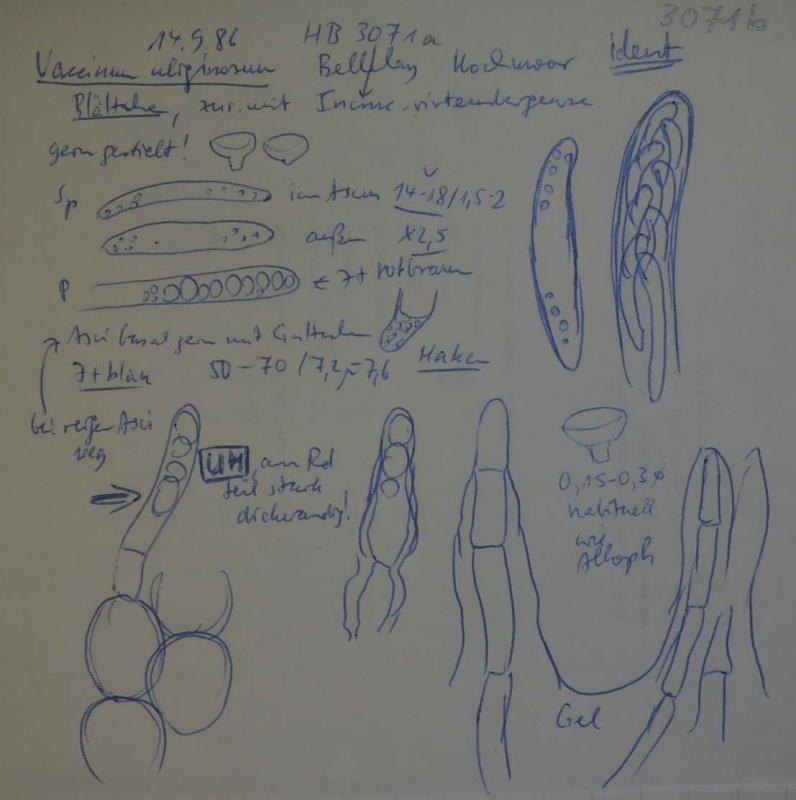 3071b
14.9.86 HB 3071a ident
Vaccinium uliginosum Hochmoor
Blättchen, zus. mit
gern gestielt!
Sp im Ascus 14-18/1,5-2
außen x2,5
P ← J+ rotbraun
Asci basal gern mit Guttulen
J+blau 50-70/7,2-7,6 Haken
bei reifen Asci
weg
UH, am Rd
teil stark
dickwandig!
0,15-0,3 ⌀
habituell
wie
Alloph
Gel